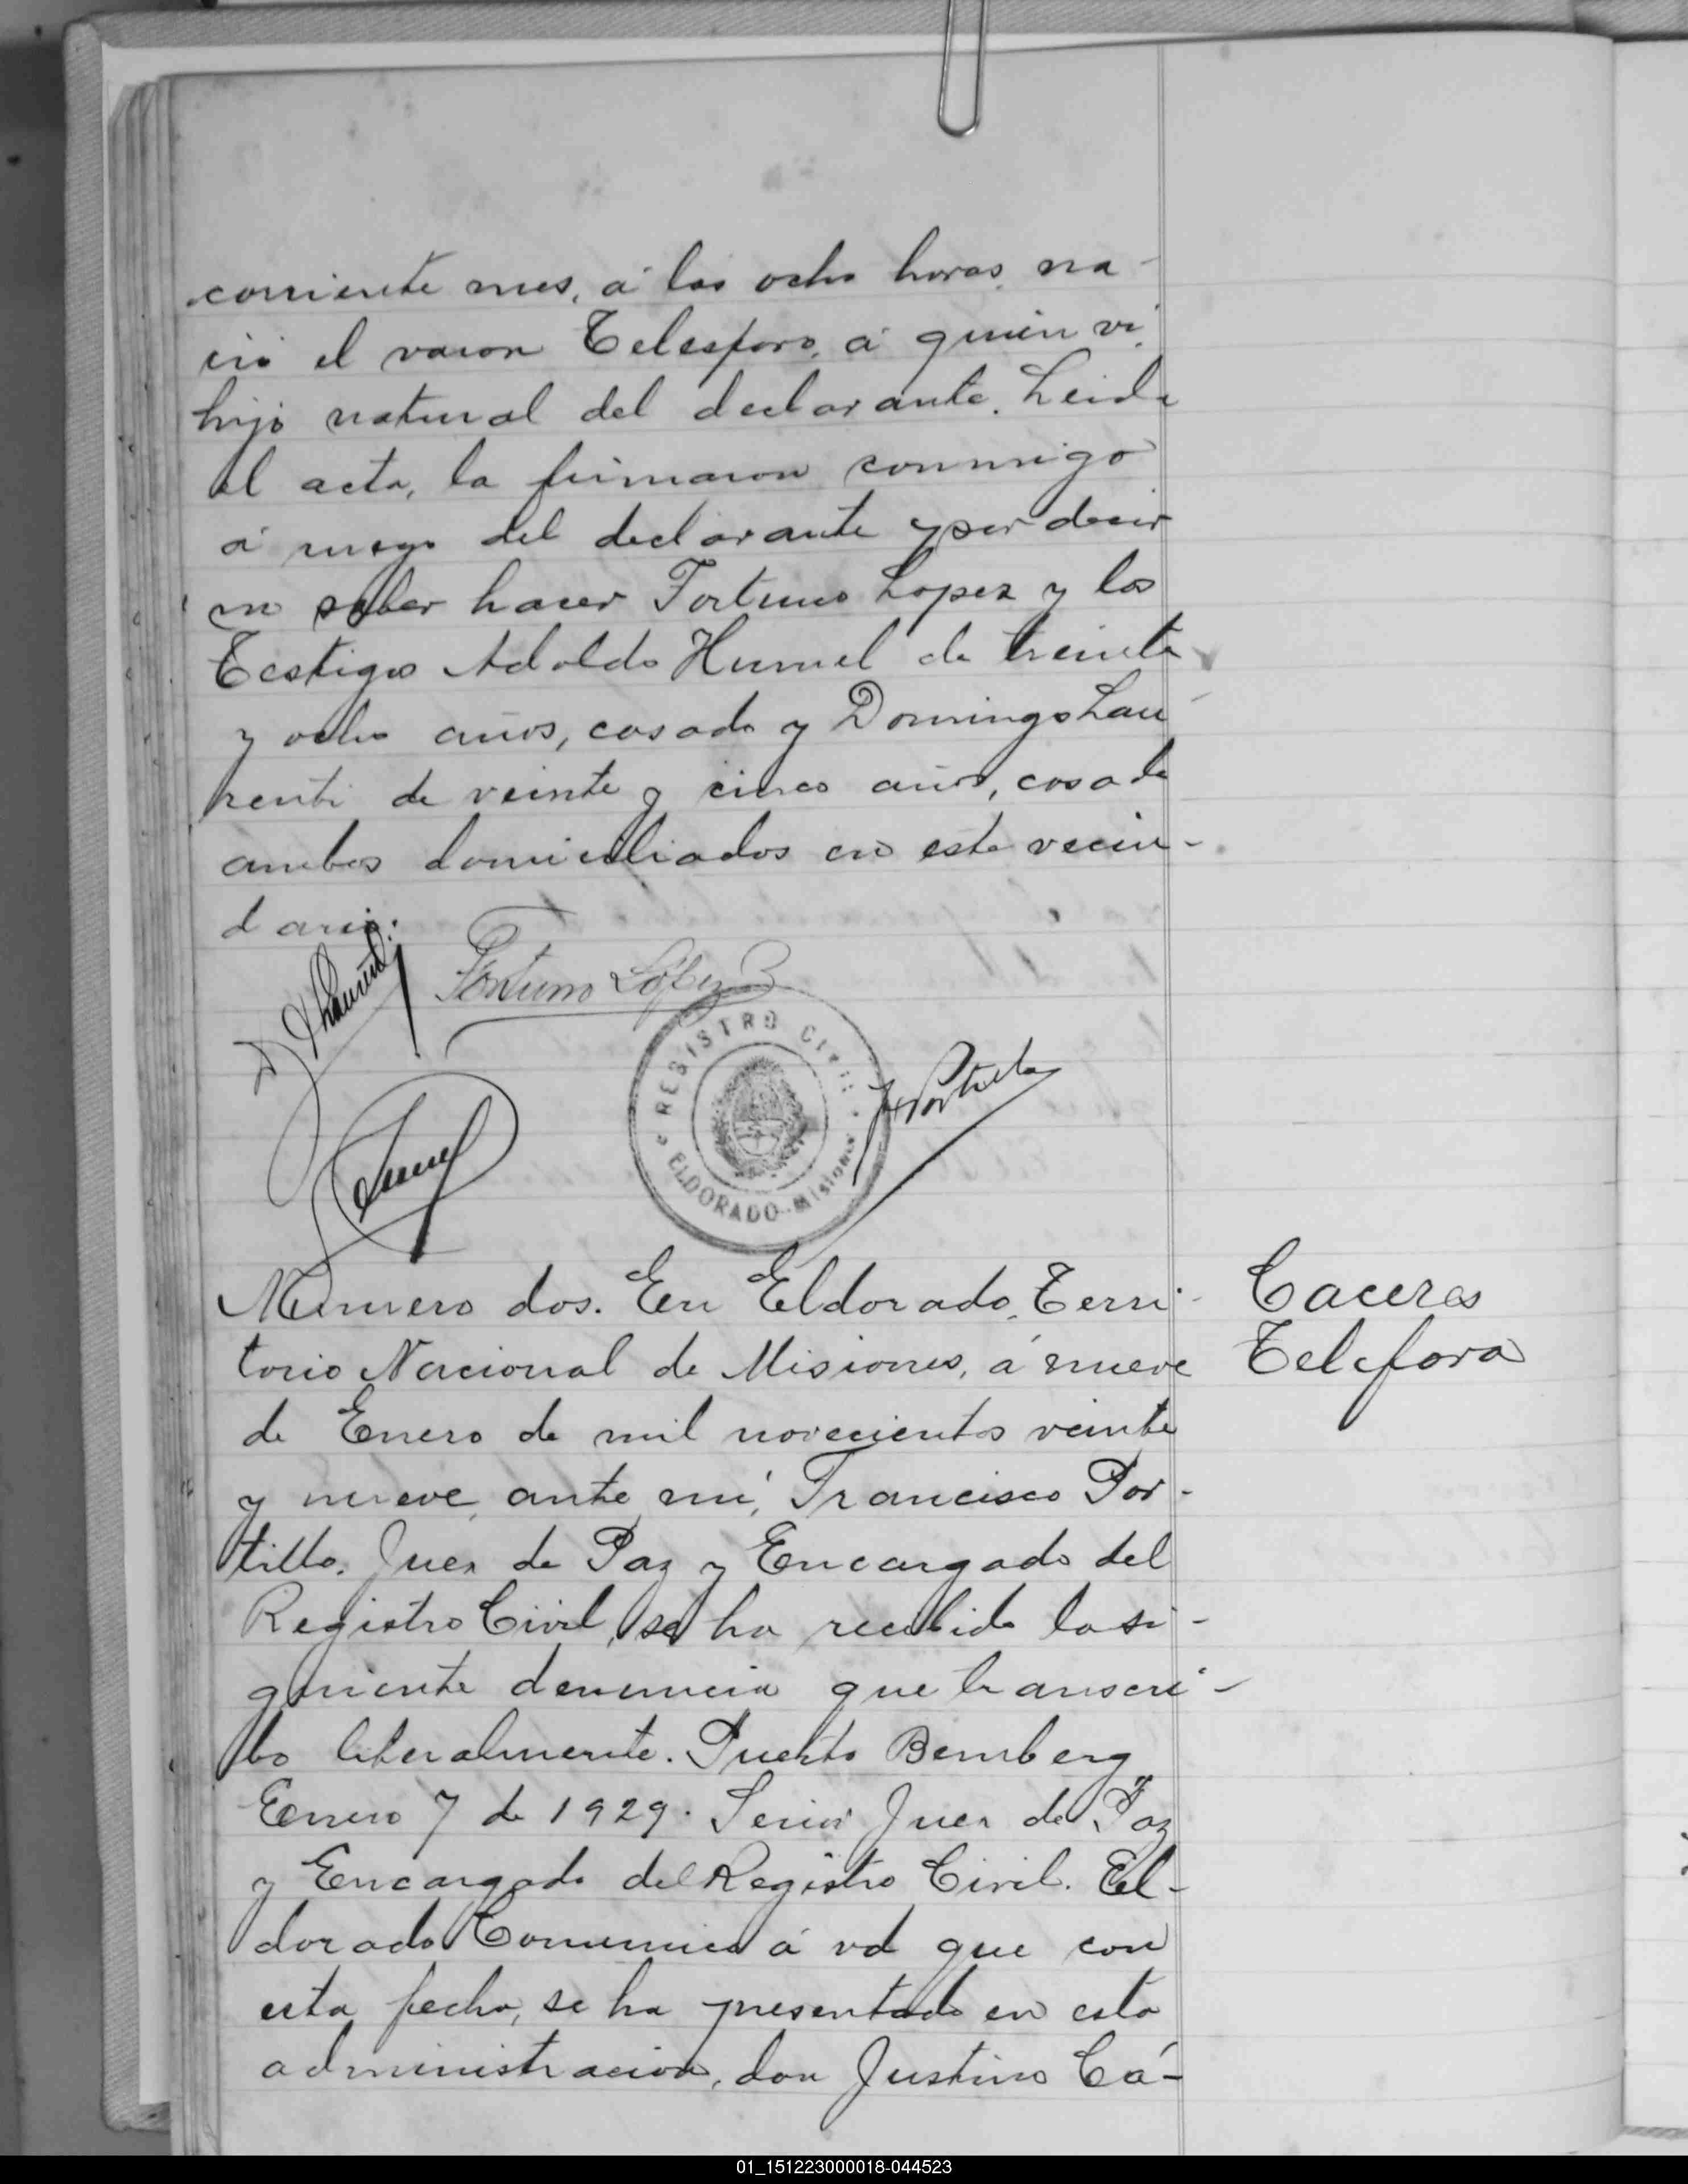 corriente mes, á las ocho horas, na-
ció el varon Telesforo, á quién ví,
hijo natural del declarante. Leida
el acta, la firmaron conmigo
á ruego del declarante y por decir
no saber hacer Fortuno Lopez y los
Testigos Adoldo Humel de treinta
y ocho años, casado y Domingo Lau
renti de veinte y cinco años, casado
ambos domiciliados en este vecin-
dario:
D Laurenti
Fortuno López
REGISTRO CIVIL
ELDORADO-Misiones
FPortillo
Humel
Numero dos. En Eldorado, Terri-
torio Nacional de Misiones, á nueve
de Enero de mil novecientos veinte
y nueve, ante mí, Francisco Por-
tillo, Juez de Paz y Encargado del
Registro Civil, se ha recibido la si-
guiente denuncia que transcri-
bo literalmente. Puerto Bemberg
Enero 7 de 1929. Señor Juez de Paz
y Encargado del Registro Civil. El-
dorado Comunico á vd que con
esta fecha, se ha presentado en esta
administracion, don Justino Cá-
Caceres
Telefora
01_151223000018-044523